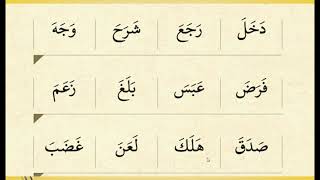 دَخَلَ رَجَعَ شَرَحَ وَجَهَ
فَرَضَ عَبَسَ بَلَغَ زَعَمَ
صَدَقَ هَلَكَ لَعَنَ غَضَبَ